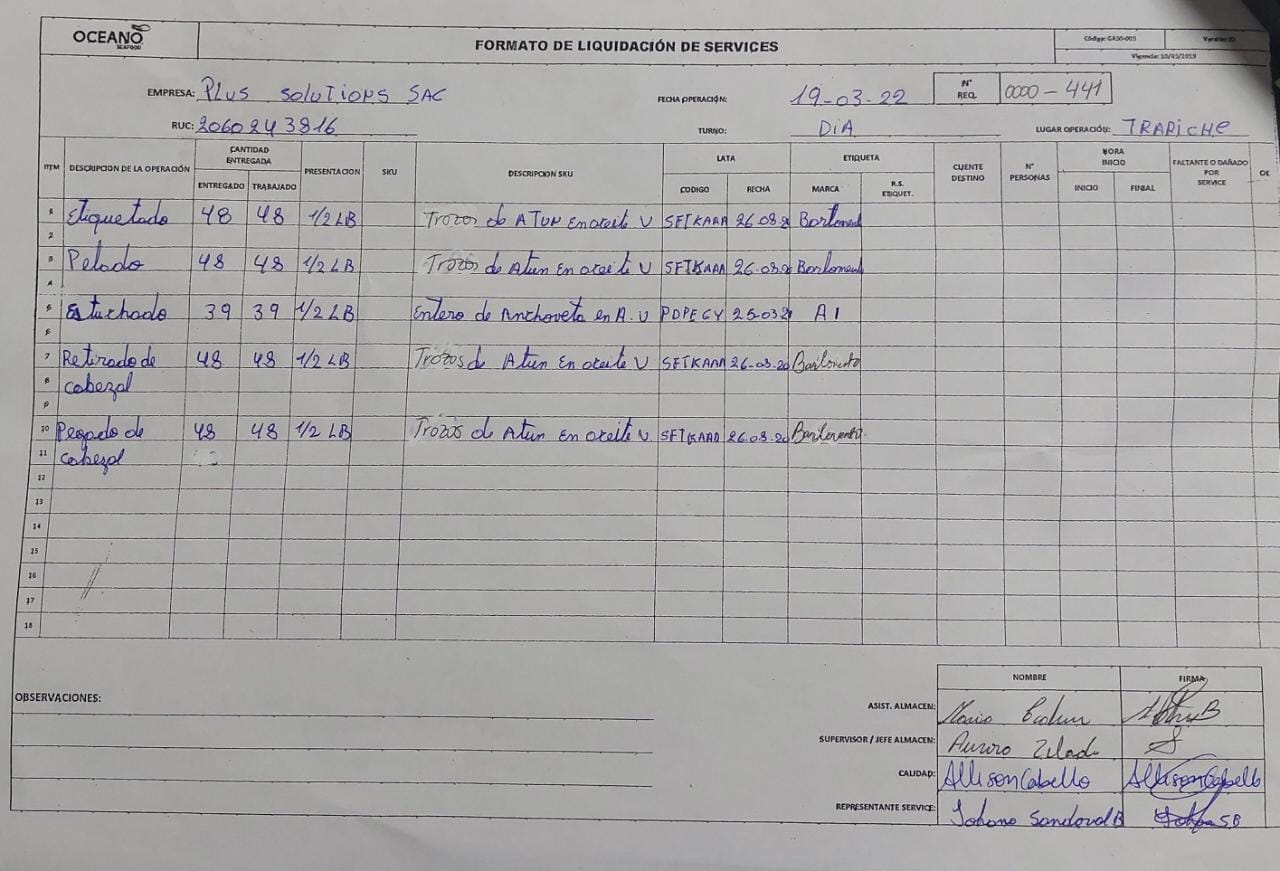 OCEANO
SEAFOOD
FORMATO DE LIQUIDACIÓN DE SERVICES
Código: GASG-005
Vigencia: 10/05/2019
EMPRESA: Plus Solutions SAC
FECHA OPERACIÓN: 19-03-22
N° REQ. 0000-441
RUC: 2060243816
TURNO: DiA
LUGAR OPERACIÓN: TRAPICHE
ITM DESCRIPCION DE LA OPERACIÓN CANTIDAD ENTREGADA PRESENTACION SKU DESCRIPCION SKU LATA ETIQUETA CLIENTE DESTINO N° PERSONAS HORA INICIO FALTANTE O DAÑADO POR SERVICE
ENTREGADO TRABAJADO CODIGO FECHA MARCA R.S. ETIQUET. INICIO FINIAL
1 Etiquetado 48 48 1/2 LB Trozos de ATUN En aceite V 26.08.2
2
3 Pelado 48 48 1/2 LB Trozos de Atun En aceite V 26.08.2
4
5 Estuchado 39 39 1/2 LB Entero de Anchoveta en A.V PDPECY 25.03.2 A1
6
7 Retirado de 48 48 1/2 LB Trozos de Atun En aceite V 26.08.20
8 cabezal
9
10 Pegado de 48 48 1/2 LB Trozos d Atun En aceite V 26.08.20
11 cabezal
12
13
14
15
16
17
18
NOMBRE FIRMA
OBSERVACIONES:
ASIST. ALMACEN: Mario
SUPERVISOR / JEFE ALMACEN:
CALIDAD: Allison Cabello Allison Cabello
REPRESENTANTE SERVICE: Sandoval B